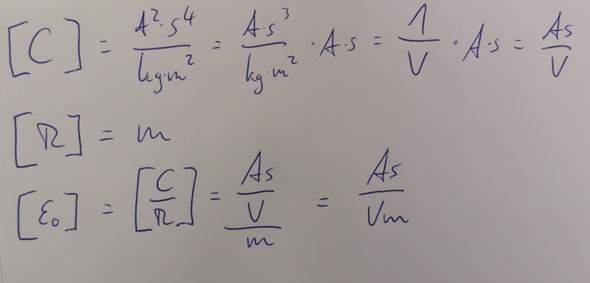 [C] = A²·s⁴/kg·m² = A·s³/kg·m² · A·s = 1/V · A·s = As/V
[R] = m
[ε₀] = [C/R] = As/V/m = As/Vm